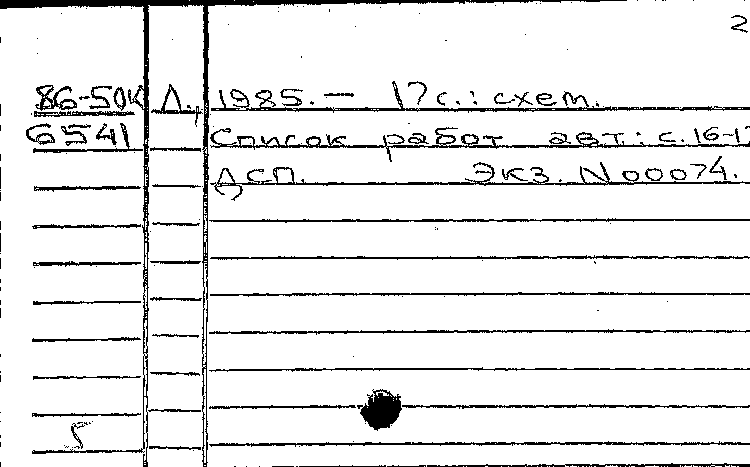 2
86-50К Л., 1985. — 17с.: схем.
6541 Список работ авт.: с. 16-17
ДСП. Экз. N 00074.
5